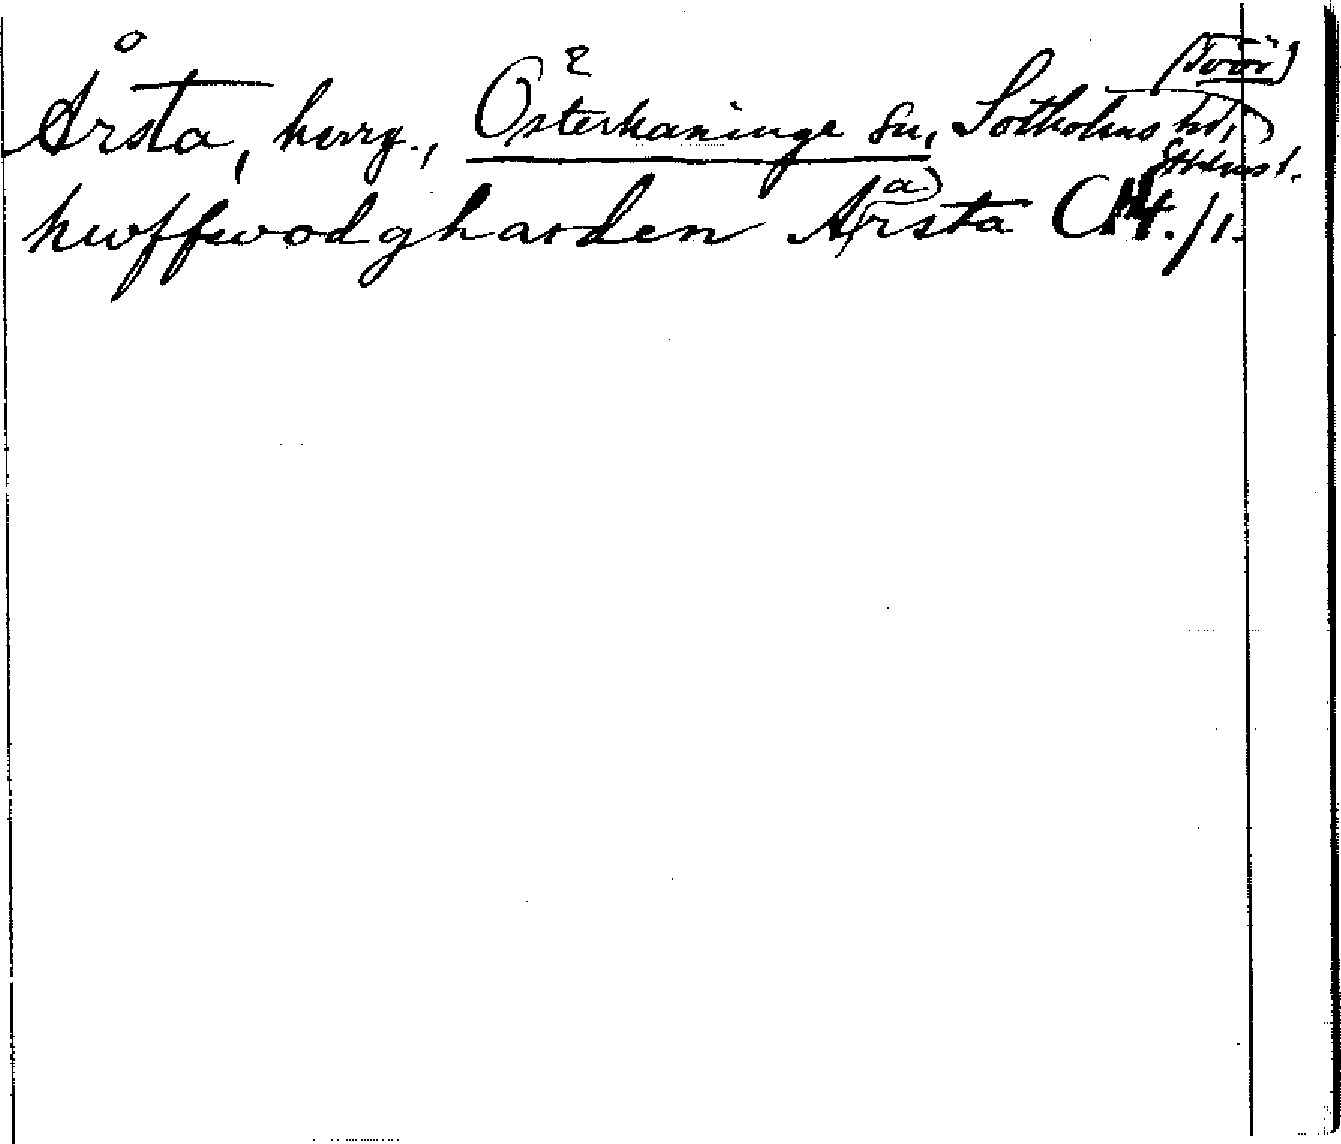 Årsta, herrg., Österhaninge sn, Sotholms hd,
Sthlms l.
huffwodgharden Arsta